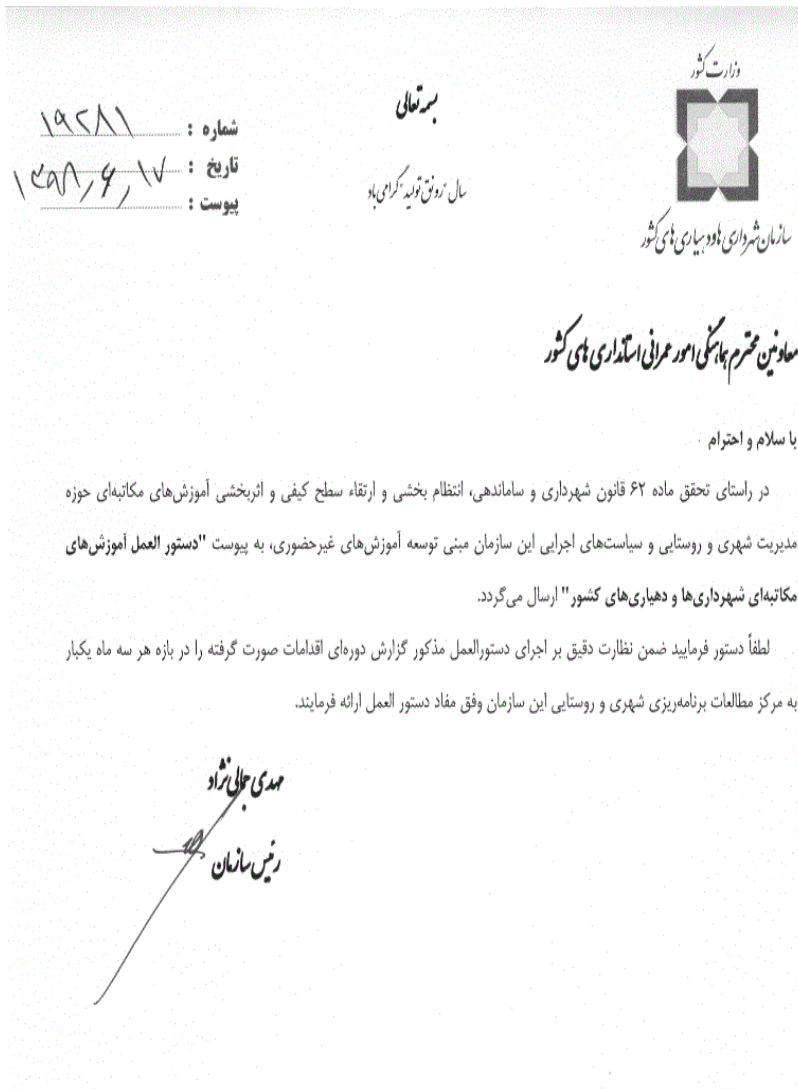 وزارت کشور
سازمان شهرداری ها و دهیاری های کشور
بسمه تعالی
سال "رونق تولید" گرامی باد
شماره : ۱۹۲۸۱
تاریخ : ۱۳۹۸,۶,۱۷
پیوست :
معاونین محترم هماهنگی امور عمرانی استانداری های کشور
با سلام و احترام
در راستای تحقق ماده ۶۲ قانون شهرداری و ساماندهی، انتظام بخشی و ارتقاء سطح کیفی و اثربخشی آموزش‌های مکاتبه‌ای حوزه
مدیریت شهری و روستایی و سیاست‌های اجرایی این سازمان مبنی توسعه آموزش‌های غیرحضوری، به پیوست "دستور العمل آموزش‌های
مکاتبه‌ای شهرداری‌ها و دهیاری‌های کشور" ارسال می‌گردد.
لطفاً دستور فرمایید ضمن نظارت دقیق بر اجرای دستورالعمل مذکور گزارش دوره‌ای اقدامات صورت گرفته را در بازه هر سه ماه یکبار
به مرکز مطالعات برنامه‌ریزی شهری و روستایی این سازمان وفق مفاد دستور العمل ارائه فرمایند.
مهدی جمالی نژاد
رئیس سازمان